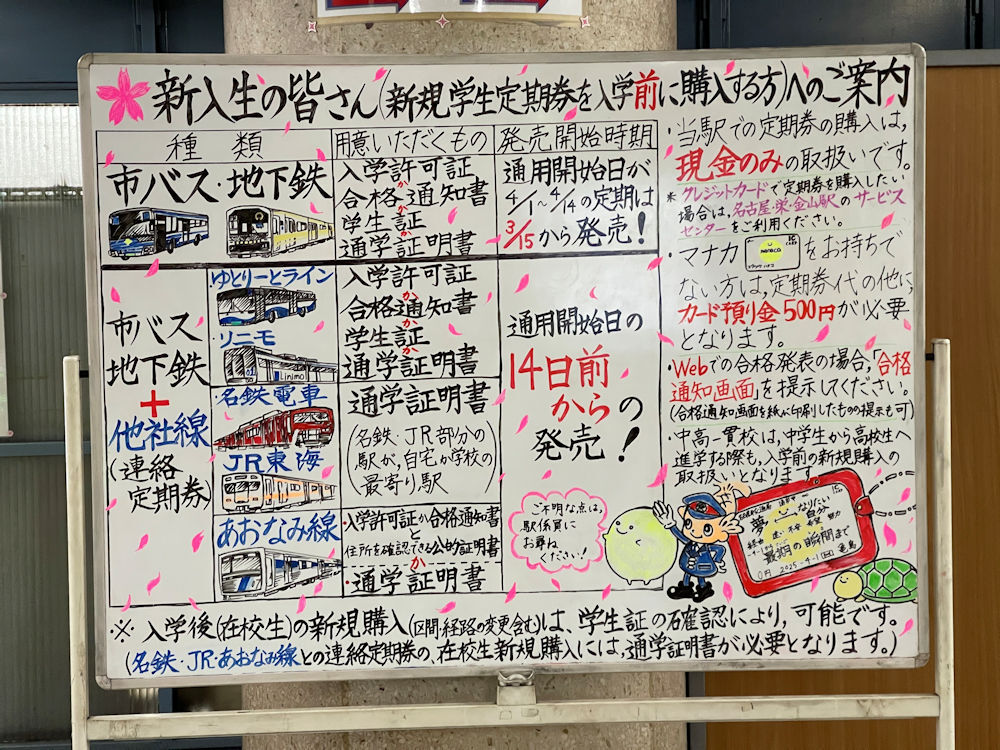 新入生の皆さん(新規学生定期券を入学前に購入する方)へのご案内
種類
用意いただくもの
発売開始時期
市バス・地下鉄
入学許可証
か
合格通知書
か
学生証
か
通学証明書
通用開始日が
4/1~4/14の定期は
3/15から発売!
市バス
地下鉄
+
他社線
(連絡
定期券)
ゆとりーとライン
リニモ
Linimo
入学許可証
か
合格通知書
か
学生証
か
通学証明書
名鉄電車
JR東海
通学証明書
(名鉄・JR部分の
駅が,自宅か学校の
最寄り駅)
あおなみ線
・入学許可証か合格通知書
と
住所を確認できる公的証明書
か
・通学証明書
通用開始日の
14日前
からの
発売!
ご不明な点は,
駅係員に
お尋ね
ください!
・当駅での定期券の購入は,
現金のみの取扱いです。
*クレジットカードで定期券を購入したい
場合は,名古屋・栄・金山駅のサービス
センターをご利用ください。
・マナカ
manaca
をお持ちで
ない方は,定期券代の他に,
カード預り金500円が必要
となります。
・Webでの合格発表の場合,「合格
通知画面」を提示してください。
(合格通知画面を紙に印刷したものの提示も可)
・中高一貫校は,中学生から高校生へ
進学する際も,入学前の新規購入の
取扱いとなります。
夢
なりたい
自分
経由
迷・不安
希望
努力
最期の瞬間まで
0円 2025.-4.-1
※ 入学後(在校生)の新規購入(区間・経路の変更含む)は、学生証の確認により,可能です。
(名鉄・JR・あおなみ線との連絡定期券の、在校生新規購入には,通学証明書が必要となります。)